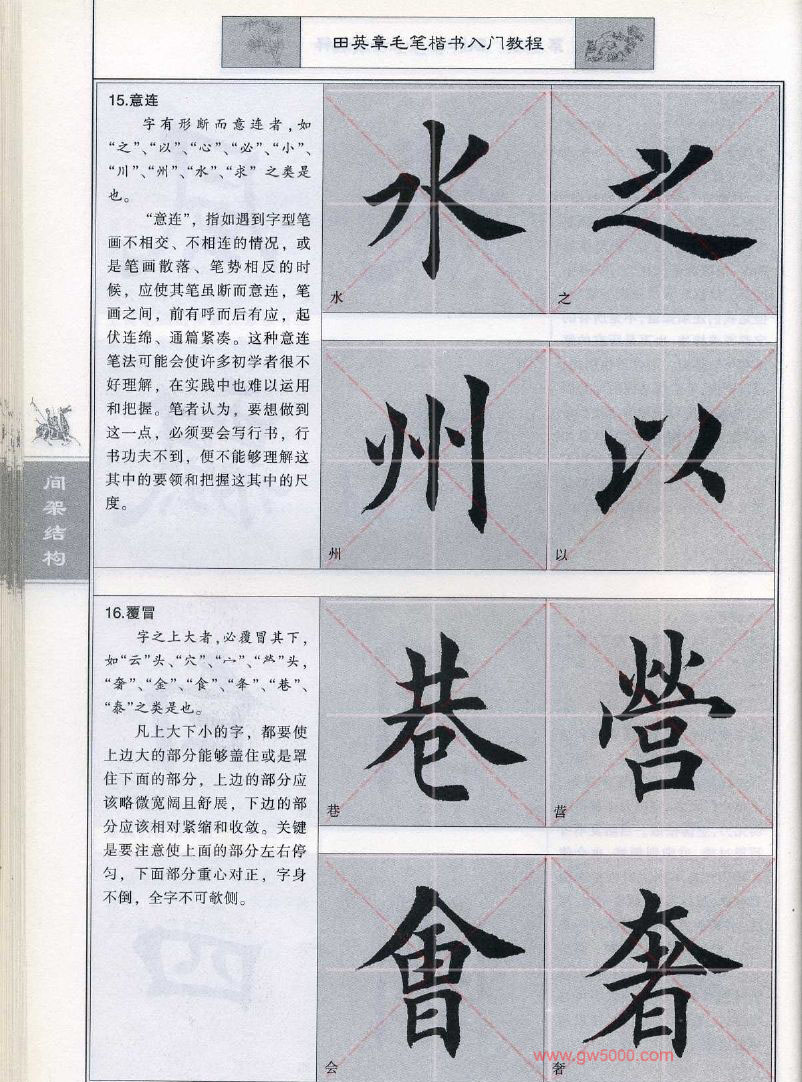 田英章毛笔楷书入门教程
15.意连
字有形断而意连者,如
“之”、“以”、“心”、“必”、“小”、
“川”、“州”、“水”、“求” 之类是
也。
“意连”，指如遇到字型笔
画不相交、不相连的情况，或
是笔画散落、笔势相反的时
候，应使其笔虽断而意连，笔
画之间，前有呼而后有应，起
伏连绵、通篇紧凑。这种意连
笔法可能会使许多初学者很不
好理解，在实践中也难以运用
和把握。笔者认为，要想做到
这一点，必须要会写行书，行
书功夫不到，便不能够理解这
其中的要领和把握这其中的尺
度。
水
水
之
之
州
州
以
以
间架结构
16.覆冒
字之上大者,必覆冒其下,
如“云”头、“穴”、“宀”、“𤇾”头,
“奢”、“金”、“食”、“夆”、“巷”、
“泰”之类是也。
凡上大下小的字，都要使
上边大的部分能够盖住或是罩
住下面的部分，上边的部分应
该略微宽阔且舒展，下边的部
分应该相对紧缩和收敛。关键
是要注意使上面的部分左右停
匀，下面部分重心对正，字身
不倒，全字不可欹侧。
巷
巷
營
营
會
会
奢
奢
www.gw5000.com